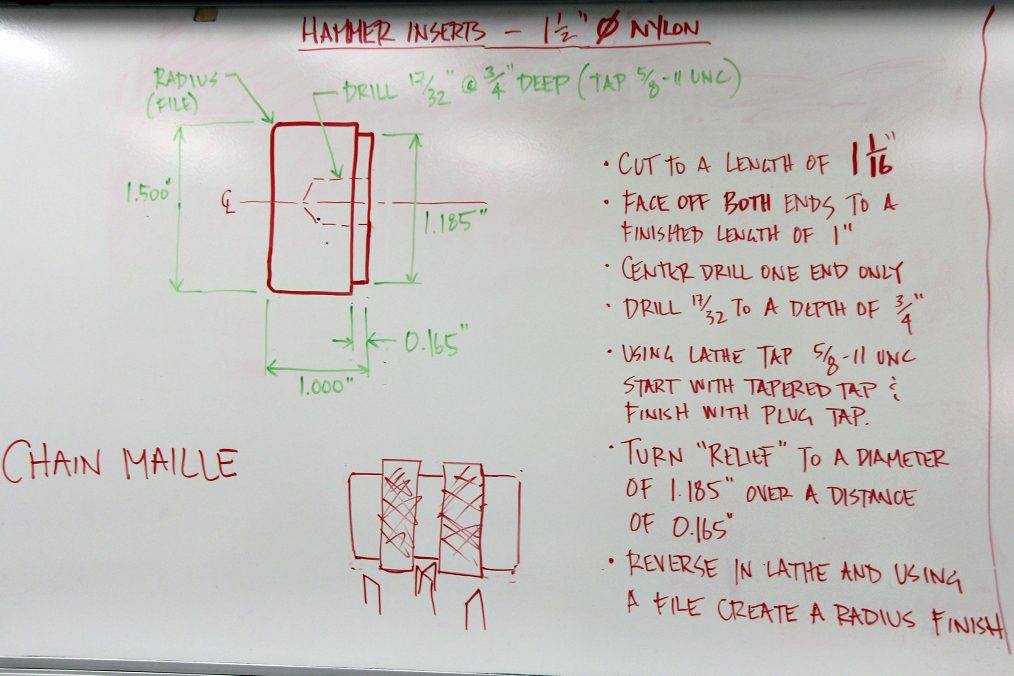 HAMMER INSERTS - 1 1/2" Ø NYLON
RADIUS
(FILE)
DRILL 17/32" @ 3/4" DEEP (TAP 5/8-11 UNC)
1.500"
℄
1.185"
0.165"
1.000"
• CUT TO A LENGTH OF 1 1/16"
• FACE OFF BOTH ENDS TO A
FINISHED LENGTH OF 1"
• CENTER DRILL ONE END ONLY
• DRILL 17/32 TO A DEPTH OF 3/4"
• USING LATHE TAP 5/8-11 UNC
START WITH TAPERED TAP &
FINISH WITH PLUG TAP.
• TURN "RELIEF" TO A DIAMETER
OF 1.185" OVER A DISTANCE
OF 0.165"
• REVERSE IN LATHE AND USING
A FILE CREATE A RADIUS FINISH
CHAIN MAILLE